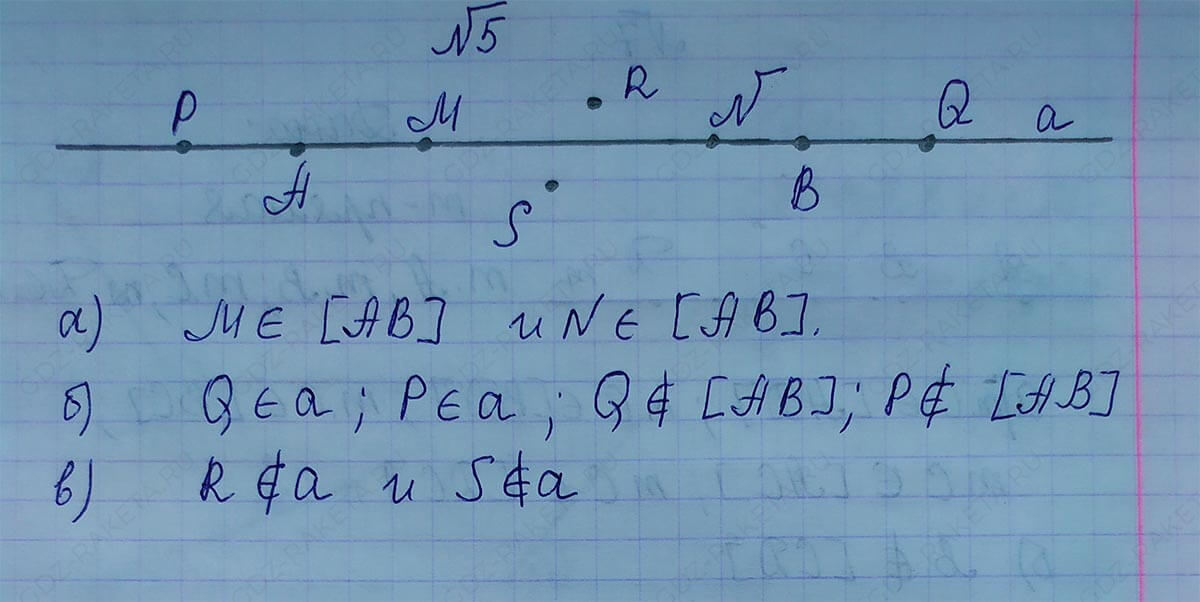 №5
P M R N Q a
A S B
а) M ∈ [AB] и N ∈ [AB].
б) Q ∈ a ; P ∈ a ; Q ∉ [AB]; P ∉ [AB]
в) R ∉ a и S ∉ a